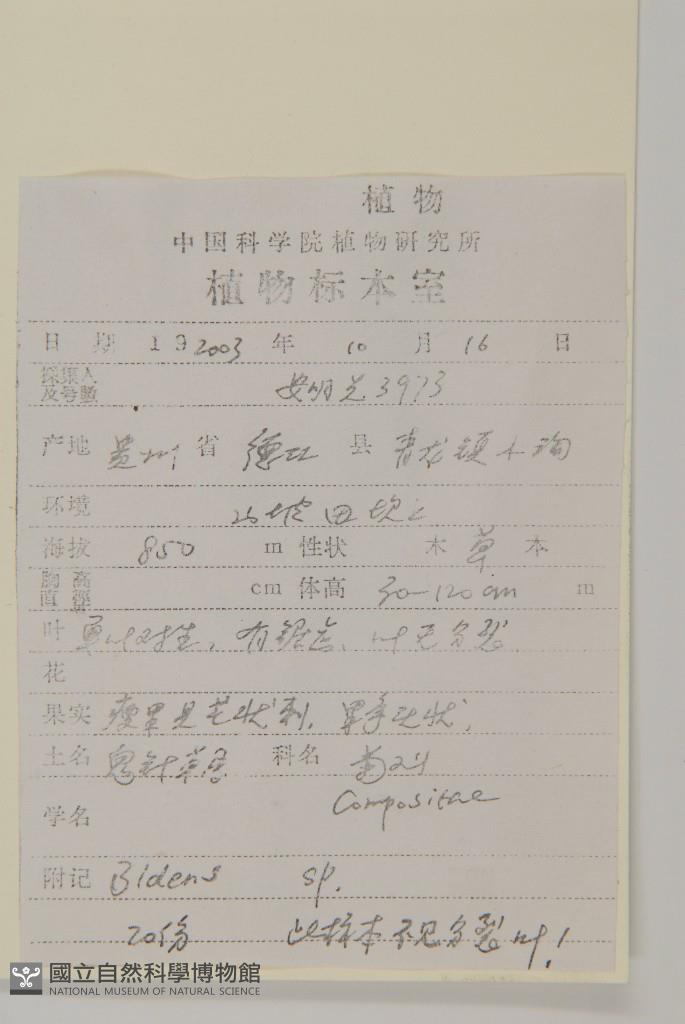 植物
中国科学院植物研究所
植物标本室
日期 192003年 10月16日
采集人
及号数 安明光3973
产地 贵州省 德江县 青龙镇
环境 山坡田坎上
海拔 850 m 性状 木 草 本
胸高
直径 cm 体高 30-120cm m
叶 单叶对生, 有锯齿, 叶无分裂
花
果实 瘦果具芒状刺,
土名 鬼针草属 科名 菊科
Compositae
学名
附记 Bidens sp.
20份 此标本不见分裂叶!
國立自然科學博物館
NATIONAL MUSEUM OF NATURAL SCIENCE